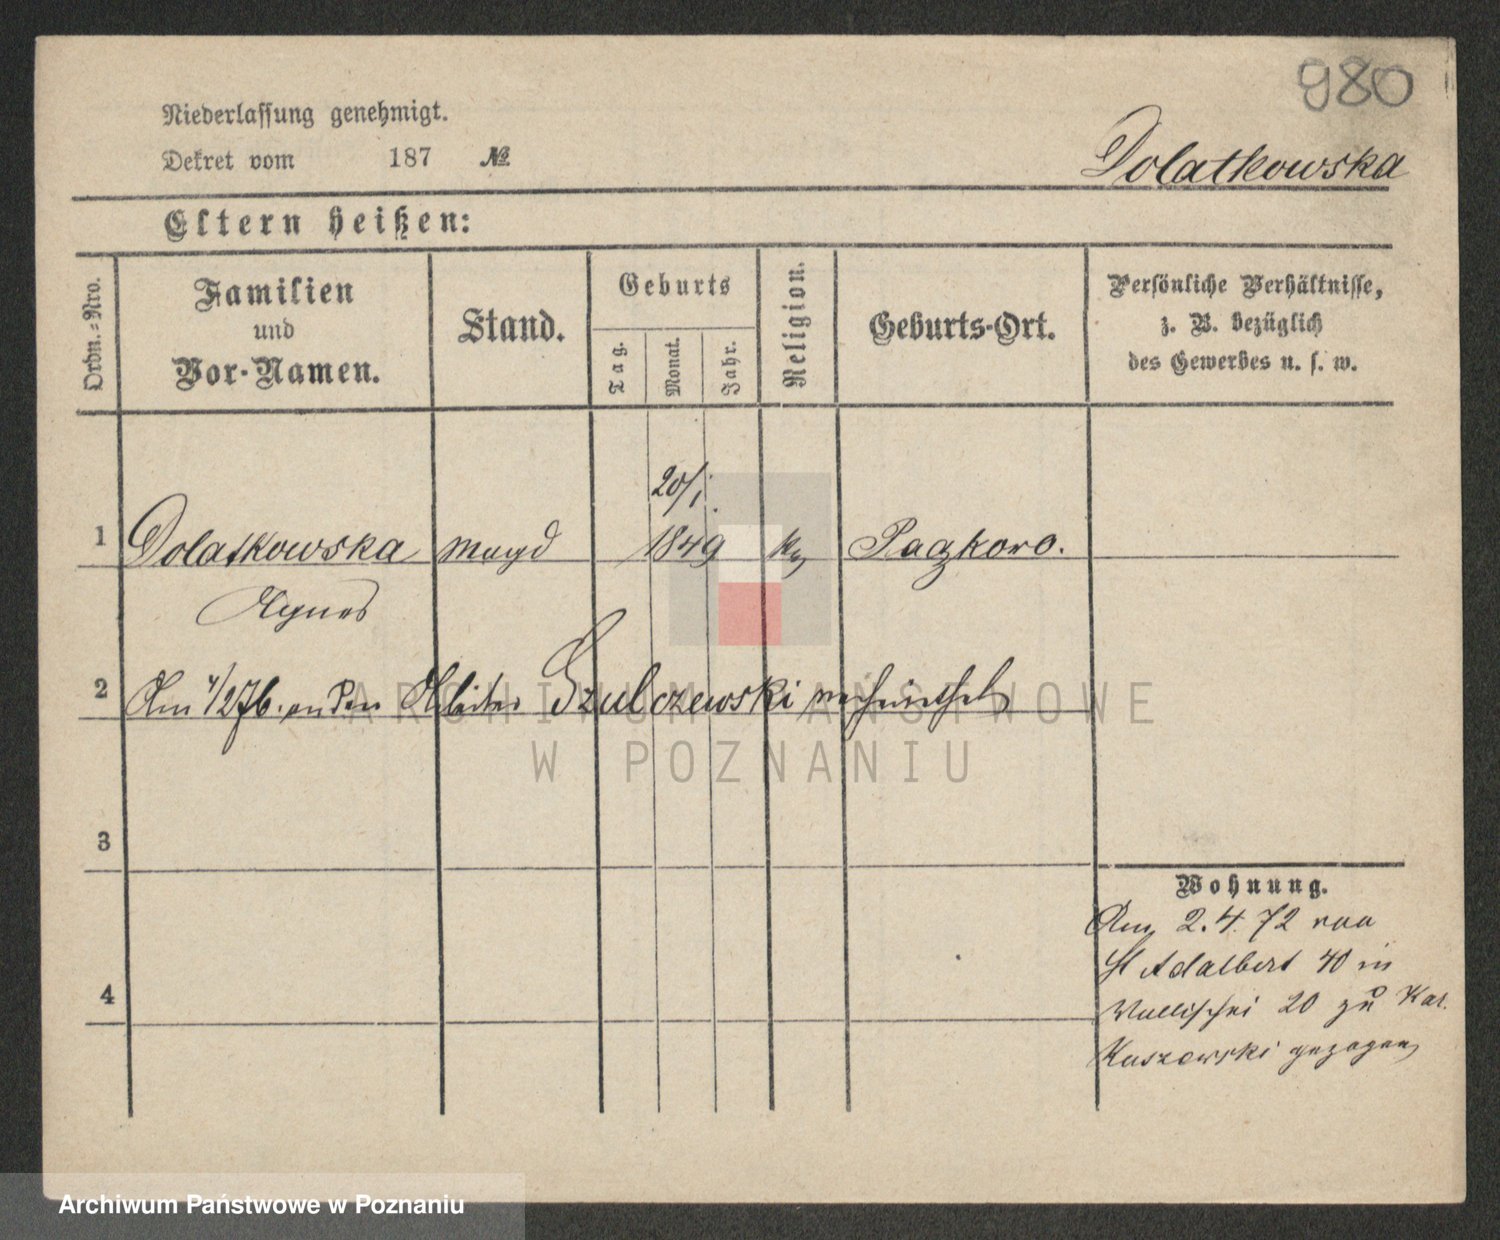 980
Niederlassung genehmigt.
Dekret vom 187 №
Dolatkowska
Eltern heißen:
Ordn.-Nro.
Familien
und
Vor-Namen.
Stand.
Geburts
Tag.
Monat.
Jahr.
Religion.
Geburts-Ort.
Persönliche Verhältnisse,
z. B. bezüglich
des Gewerbes u. s. w.
20/1.
1 Dolatkowska Magd 1849 k
Agnes
2 Am 4/2 76. an den Arbeiter Szulczewski verheirathet
3
4
Wohnung.
Am 2. 4. 72 von
St Adalbert 40 in
Wallischei 20 zu
Kaszowski gezogen
ARCHIWUM PAŃSTWOWE
W POZNANIU
Archiwum Państwowe w Poznaniu